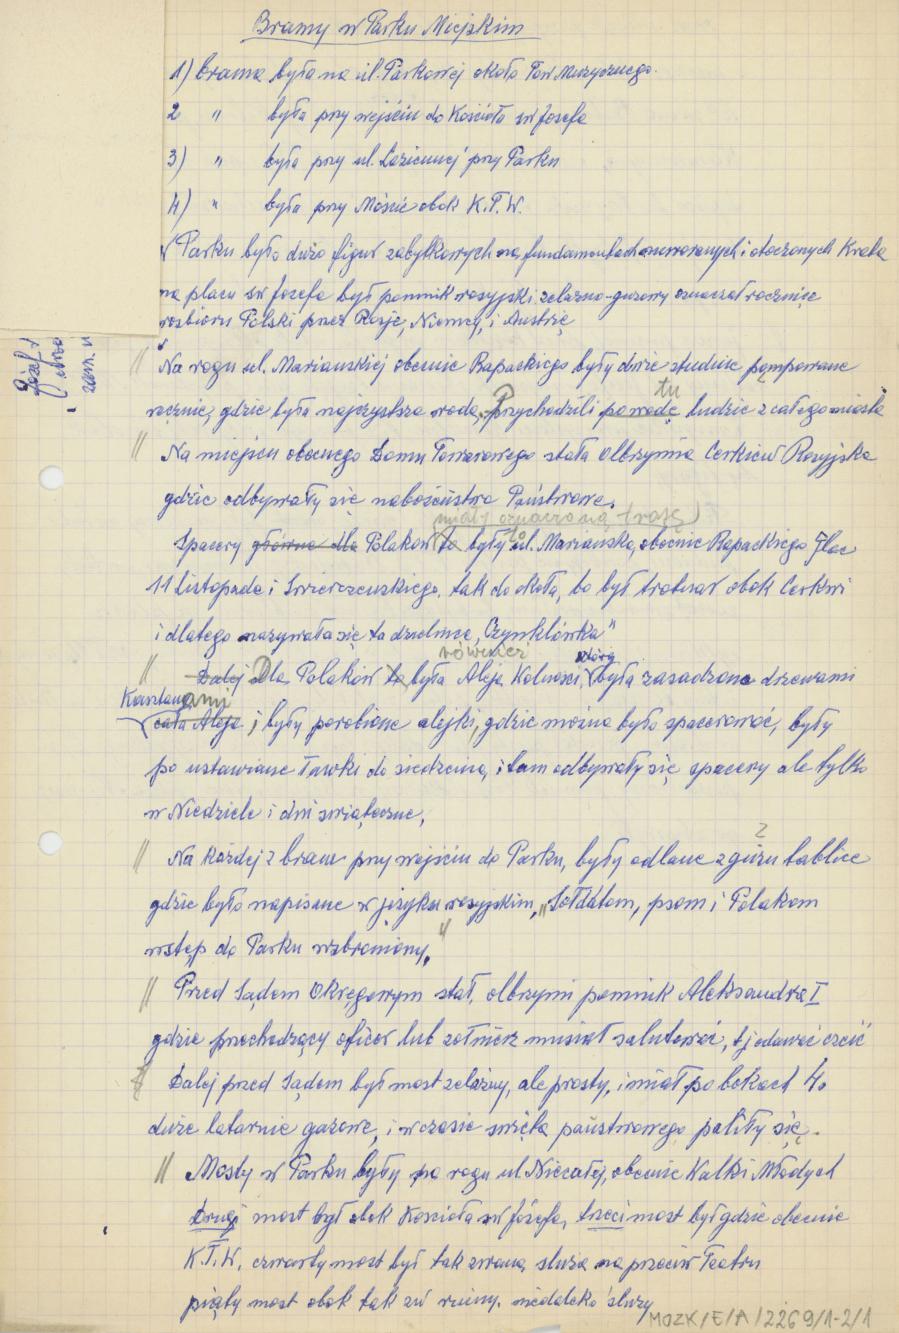 Bramy w Parku Miejskim
1) brama była na ul. Parkowej około Tow Muzycznego.
2 " była przy wejściu do Kościoła sw Jozefa
3) " była przy ul. Łaziennej przy Parku
4) " była przy Moście obok K.T.W.
Parku było dużo figur zabytkowych na fundamentach i otoczonych
na placu sw Jozefa był pomnik rosyjski zelazno-guzowy oznaczał rocznice
rozbioru Polski przez Rosje, Niemcy, i Austrie
Józef
zam.
" Na rogu ul. Marianskiej obecnie Rapackiego były dwie studnie pompowane
ręcznie, gdzie była najczystsza woda, Przychodzili tu po wodę ludzie z całego miasta
" Na miejscu obecnego Domu Towarowego stała olbrzymia Cerkiew Rosyjska
gdzie odbywały się nabożeństwa Państwowe.
miały oznaczoną trasę
Spacery główne dla Polakow to były ul. Marianska, obecnie Rapackiego Plac
11 Listopada i Swierczewskiego. tak do okoła, bo był trotuar obok Cerkwi
i dlatego nazywała się ta dzielnica, Czynklówka"
również która
" Dalej Dla Polaków to była Aleja Wolnosci, była zasadzona drzewami
Kasztanami
cała Aleja i były porobione alejki, gdzie można było spacerować, były
po ustawiane ławki do siedzenia, i tam odbywały się spacery ale tylko
w Niedziele i dni swiąteczne,
" Na każdej z bram przy wejściu do Parku, były odlane z guzu tablice
gdzie było napisane w języku rosyjskim, "Sołdatom, psom i Polakom
wstęp do Parku wzbroniony."
" Przed Sądem Okręgowym stał, olbrzymi pomnik Aleksandra I
gdzie przechodzący oficer lub zołnierz musiał salutować, tj odawać cześć
Dalej przed Sądem był most zelazny, ale prosty, i miał po bokach 4.
duże latarnie gazowe, i w czasie swięta państwowego paliły się.
" Mosty w Parku były na rogu ul Niecałej, obecnie Walki Młodych
Drugi most był obok Kościoła sw Józefa, trzeci most był gdzie obecnie
K.T.W. czwarty most był tak zwana sluza na przeciw Teatru
piąty most obok tak zw ruiny. niedaleko sluzy
MOZK/E/A/2269/1-2/1